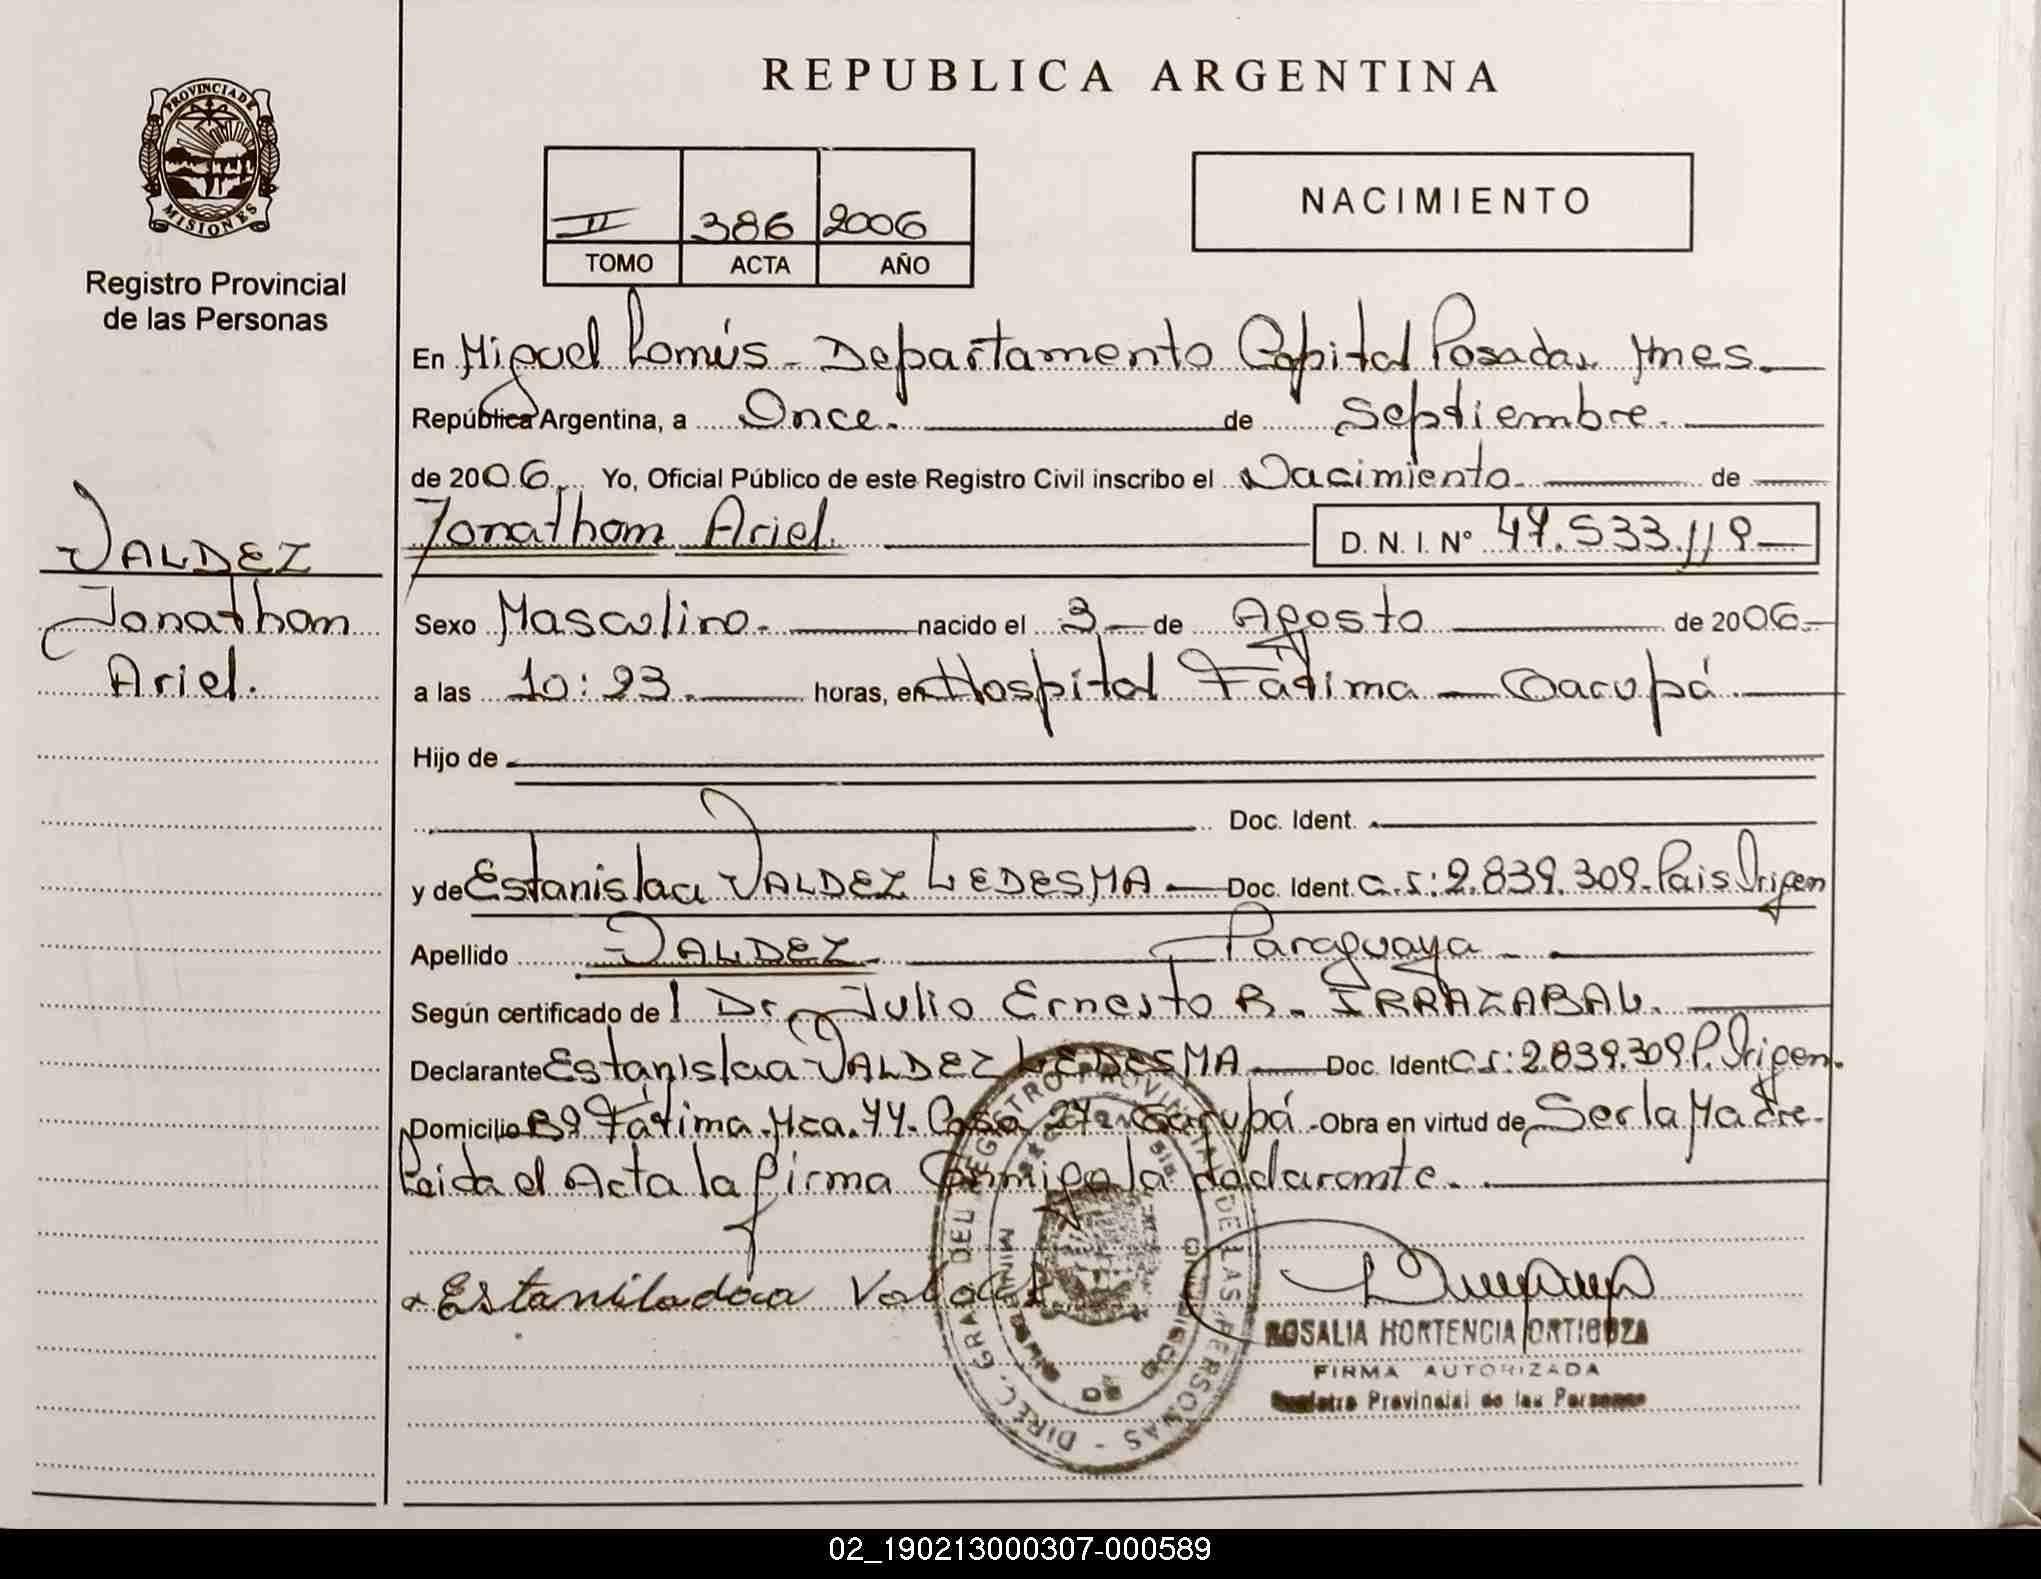 REPUBLICA ARGENTINA
PROVINCIA DE
MISIONES
Registro Provincial
de las Personas
II 386 2006
TOMO ACTA AÑO
NACIMIENTO
En Miguel Lanús - Departamento Capital Posadas Mnes.
República Argentina, a Once. de Septiembre.
de 2006. Yo, Oficial Público de este Registro Civil inscribo el Nacimiento. de
Jonathan Ariel. D. N. I. Nº 47.533.119
VALDEZ
Jonathan
Ariel.
Sexo Masculino. nacido el 3 de Agosto de 2006.
a las 10:23. horas, en Hospital Fátima - Garupá
Hijo de
Doc. Ident.
y de Estanislaa VALDEZ LEDESMA Doc. Ident. C.I: 2.839.309. Pais Origen
Apellido VALDEZ. Paraguaya
Según certificado de l Dr. Julio Ernesto R. IRRAZABAL.
Declarante Estanislaa VALDEZ LEDESMA. Doc. Ident C.I: 2.839.309 P. Origen.
Domicilio Bº Fátima. Mza. 74. Casa 27 - Garupá - Obra en virtud de Ser la Madre.
Leida el Acta la firma Conmigo la declarante.
DIREC. GRAL DEL REGISTRO PROVINCIAL DE LAS PERSONAS
ROSALIA HORTENCIA ORTIGOZA
FIRMA AUTORIZADA
Registro Provincial de las Personas
02_190213000307-000589